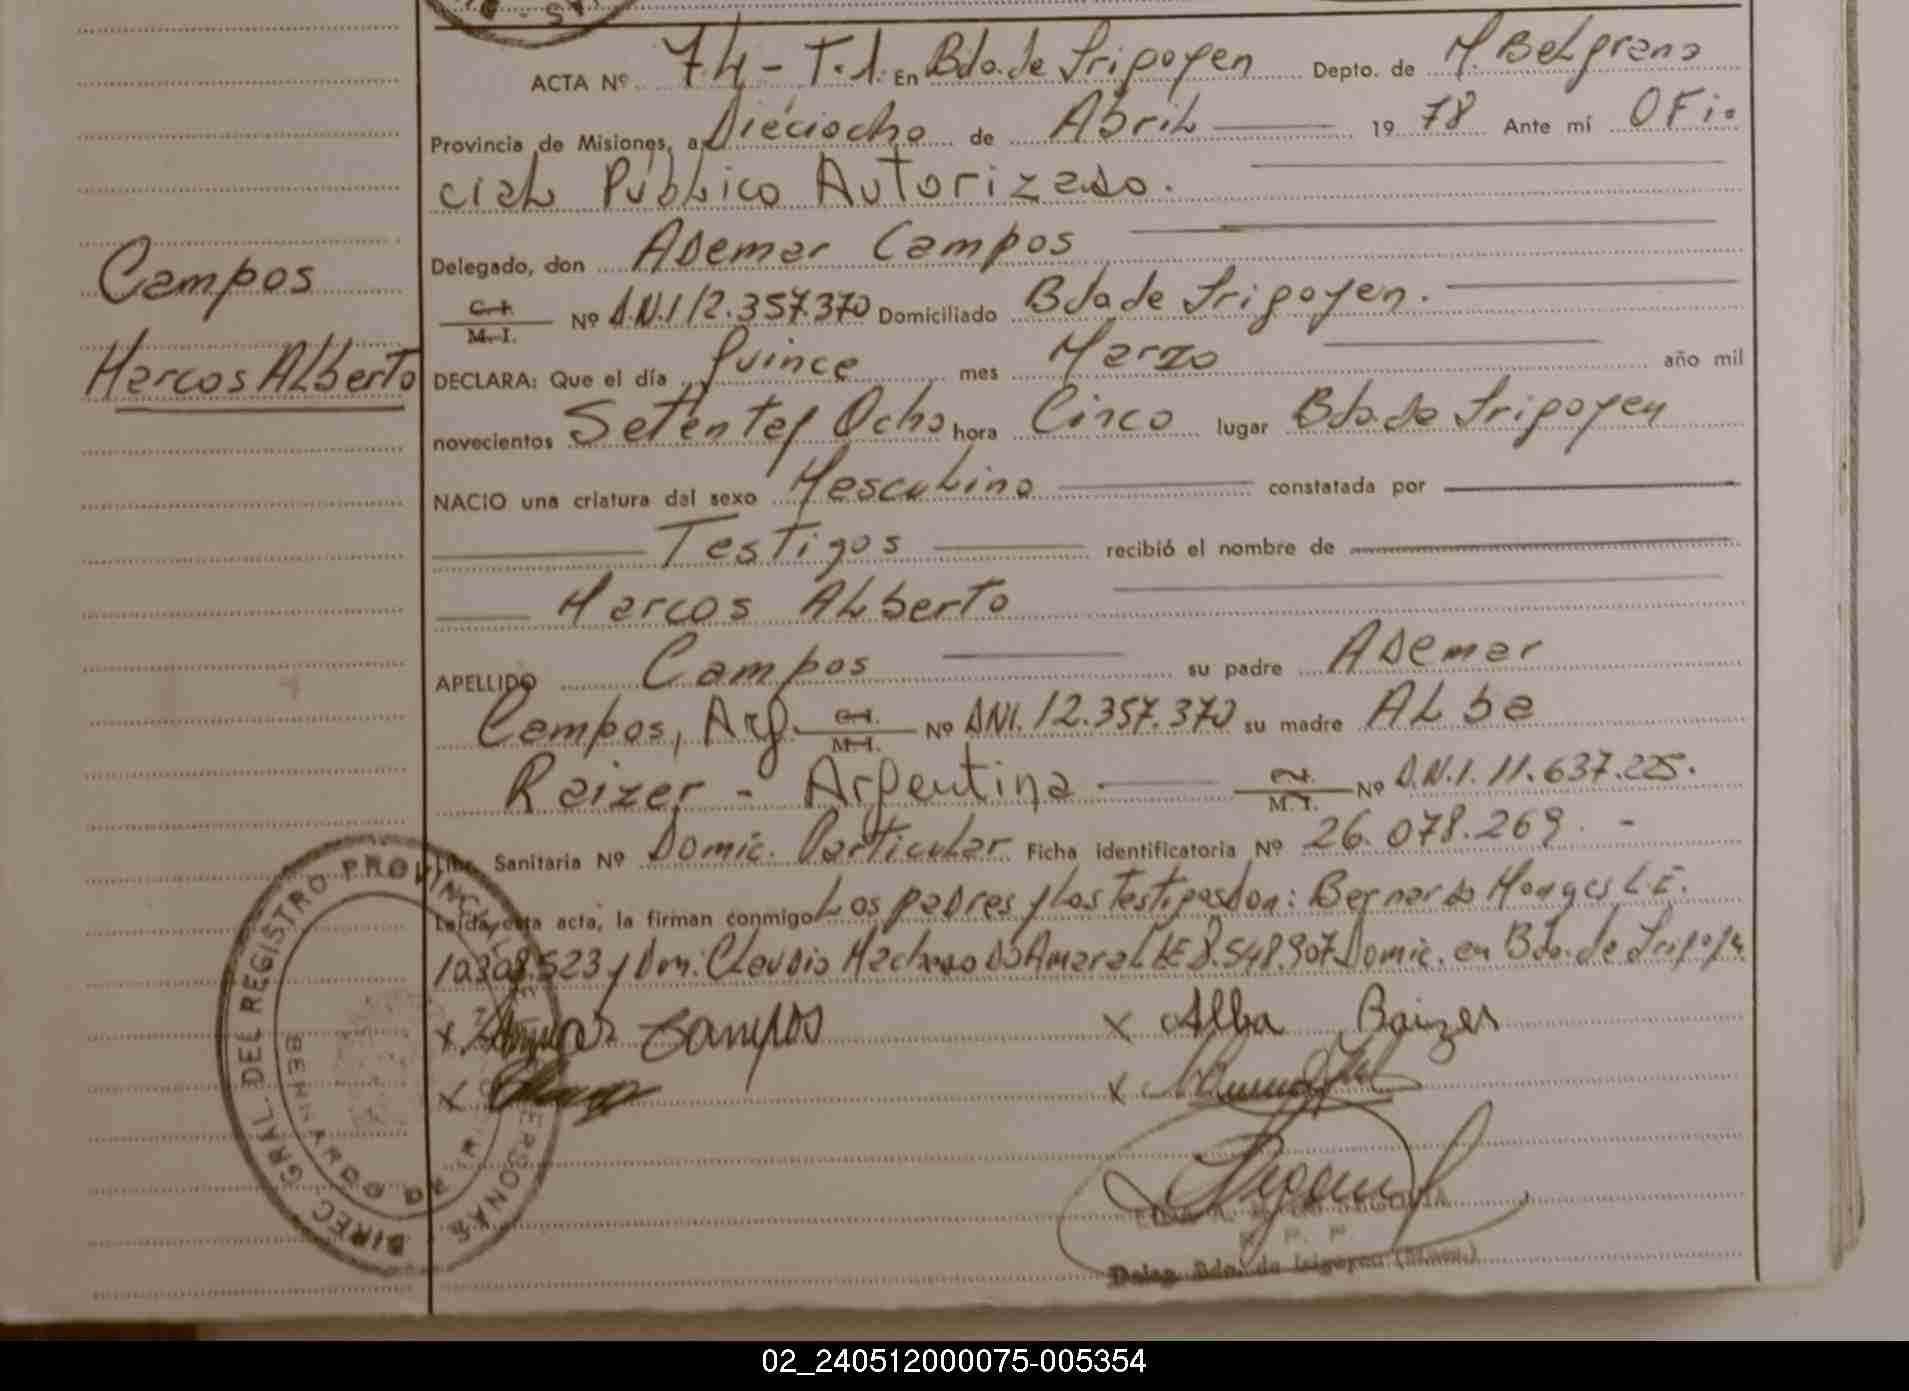 ACTA Nº 74 - T.1. En Bdo. de Irigoyen Depto. de M. Belgrano
Provincia de Misiones, a Dieciocho de Abril 19 78 Ante mí Ofi-
cial Público Autorizado.
Delegado, don Ademar Campos
C.I. M.I. Nº D.N.I 12.357.370 Domiciliado Bdo de Irigoyen.
Campos
Marcos Alberto
DECLARA: Que el día Quince mes Marzo año mil
novecientos Setenta y Ocho hora Cinco lugar Bdo. de Irigoyen
NACIO una criatura del sexo Masculino constatada por
Testigos recibió el nombre de
Marcos Alberto
APELLIDO Campos su padre Ademar
Campos, Arg. C.I. M.I. Nº DNI. 12.357.370 su madre Alba
Raizer - Argentina C.I. M.I. Nº D.N.I. 11.637.225.
Libr. Sanitaria Nº Domic. Particular Ficha identificatoria Nº 26.078.269. -
Leída esta acta, la firman conmigo Los padres y los Testigos don: Bernardo Monges L.E.
10.308.523 y Don: Claudio Machado Do Amaral LE 8.548.907 Domic. en Bdo. de Irigoyen.
x Campos x Alba Raizer
x x
DIREC. GRAL. DEL REGISTRO PROVINCIAL DE LAS PERSONAS
BERNARDO DE
Deleg. Bdo. de Irigoyen (Mnes.)
02_240512000075-005354